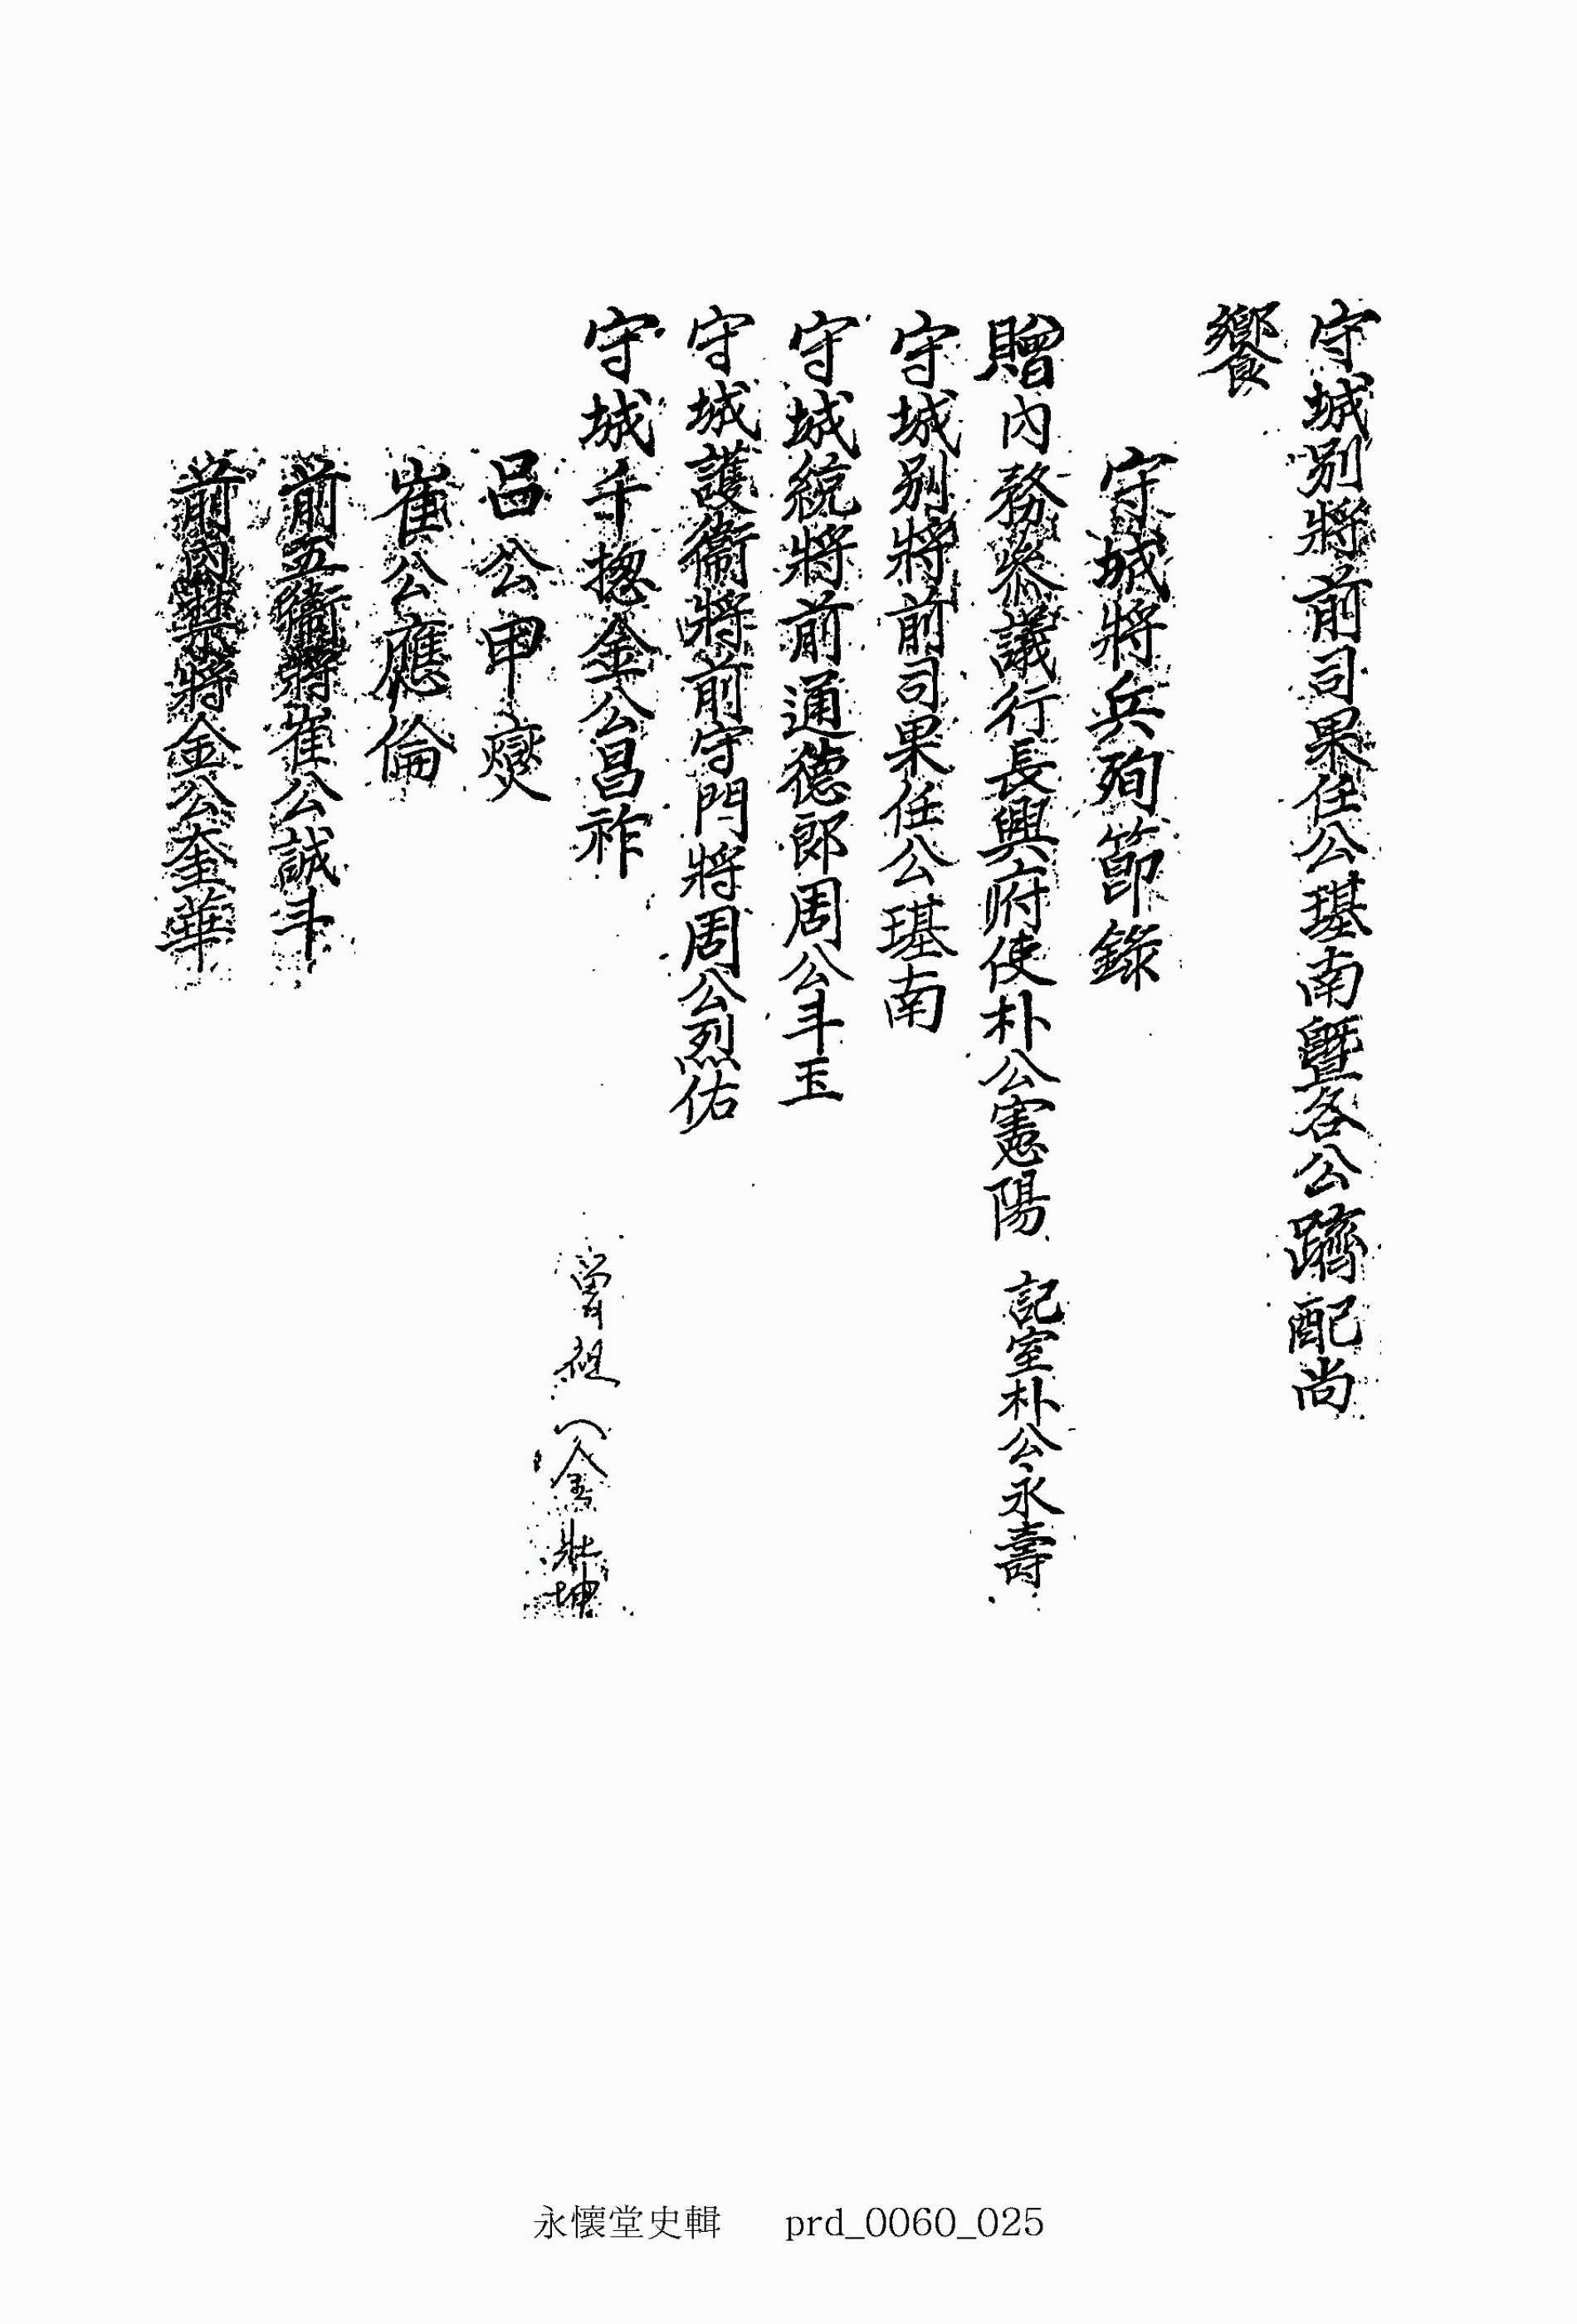 守城別將前司果任公璂南曁各公躋配尚
饗
守城將兵殉節錄
贈內務參議行長興府使朴公憲陽 記室朴公永壽
守城別將前司果任公璂南
守城統將前通德郎周公斗玉
守城護衛將前守門將周公烈佑
守城千摠金公昌祚 曾祖 金 坤
呂公甲爕
崔公應倫
前五衛將崔公誠斗
前內禁將金公奎華
永懷堂史輯 prd_0060_025